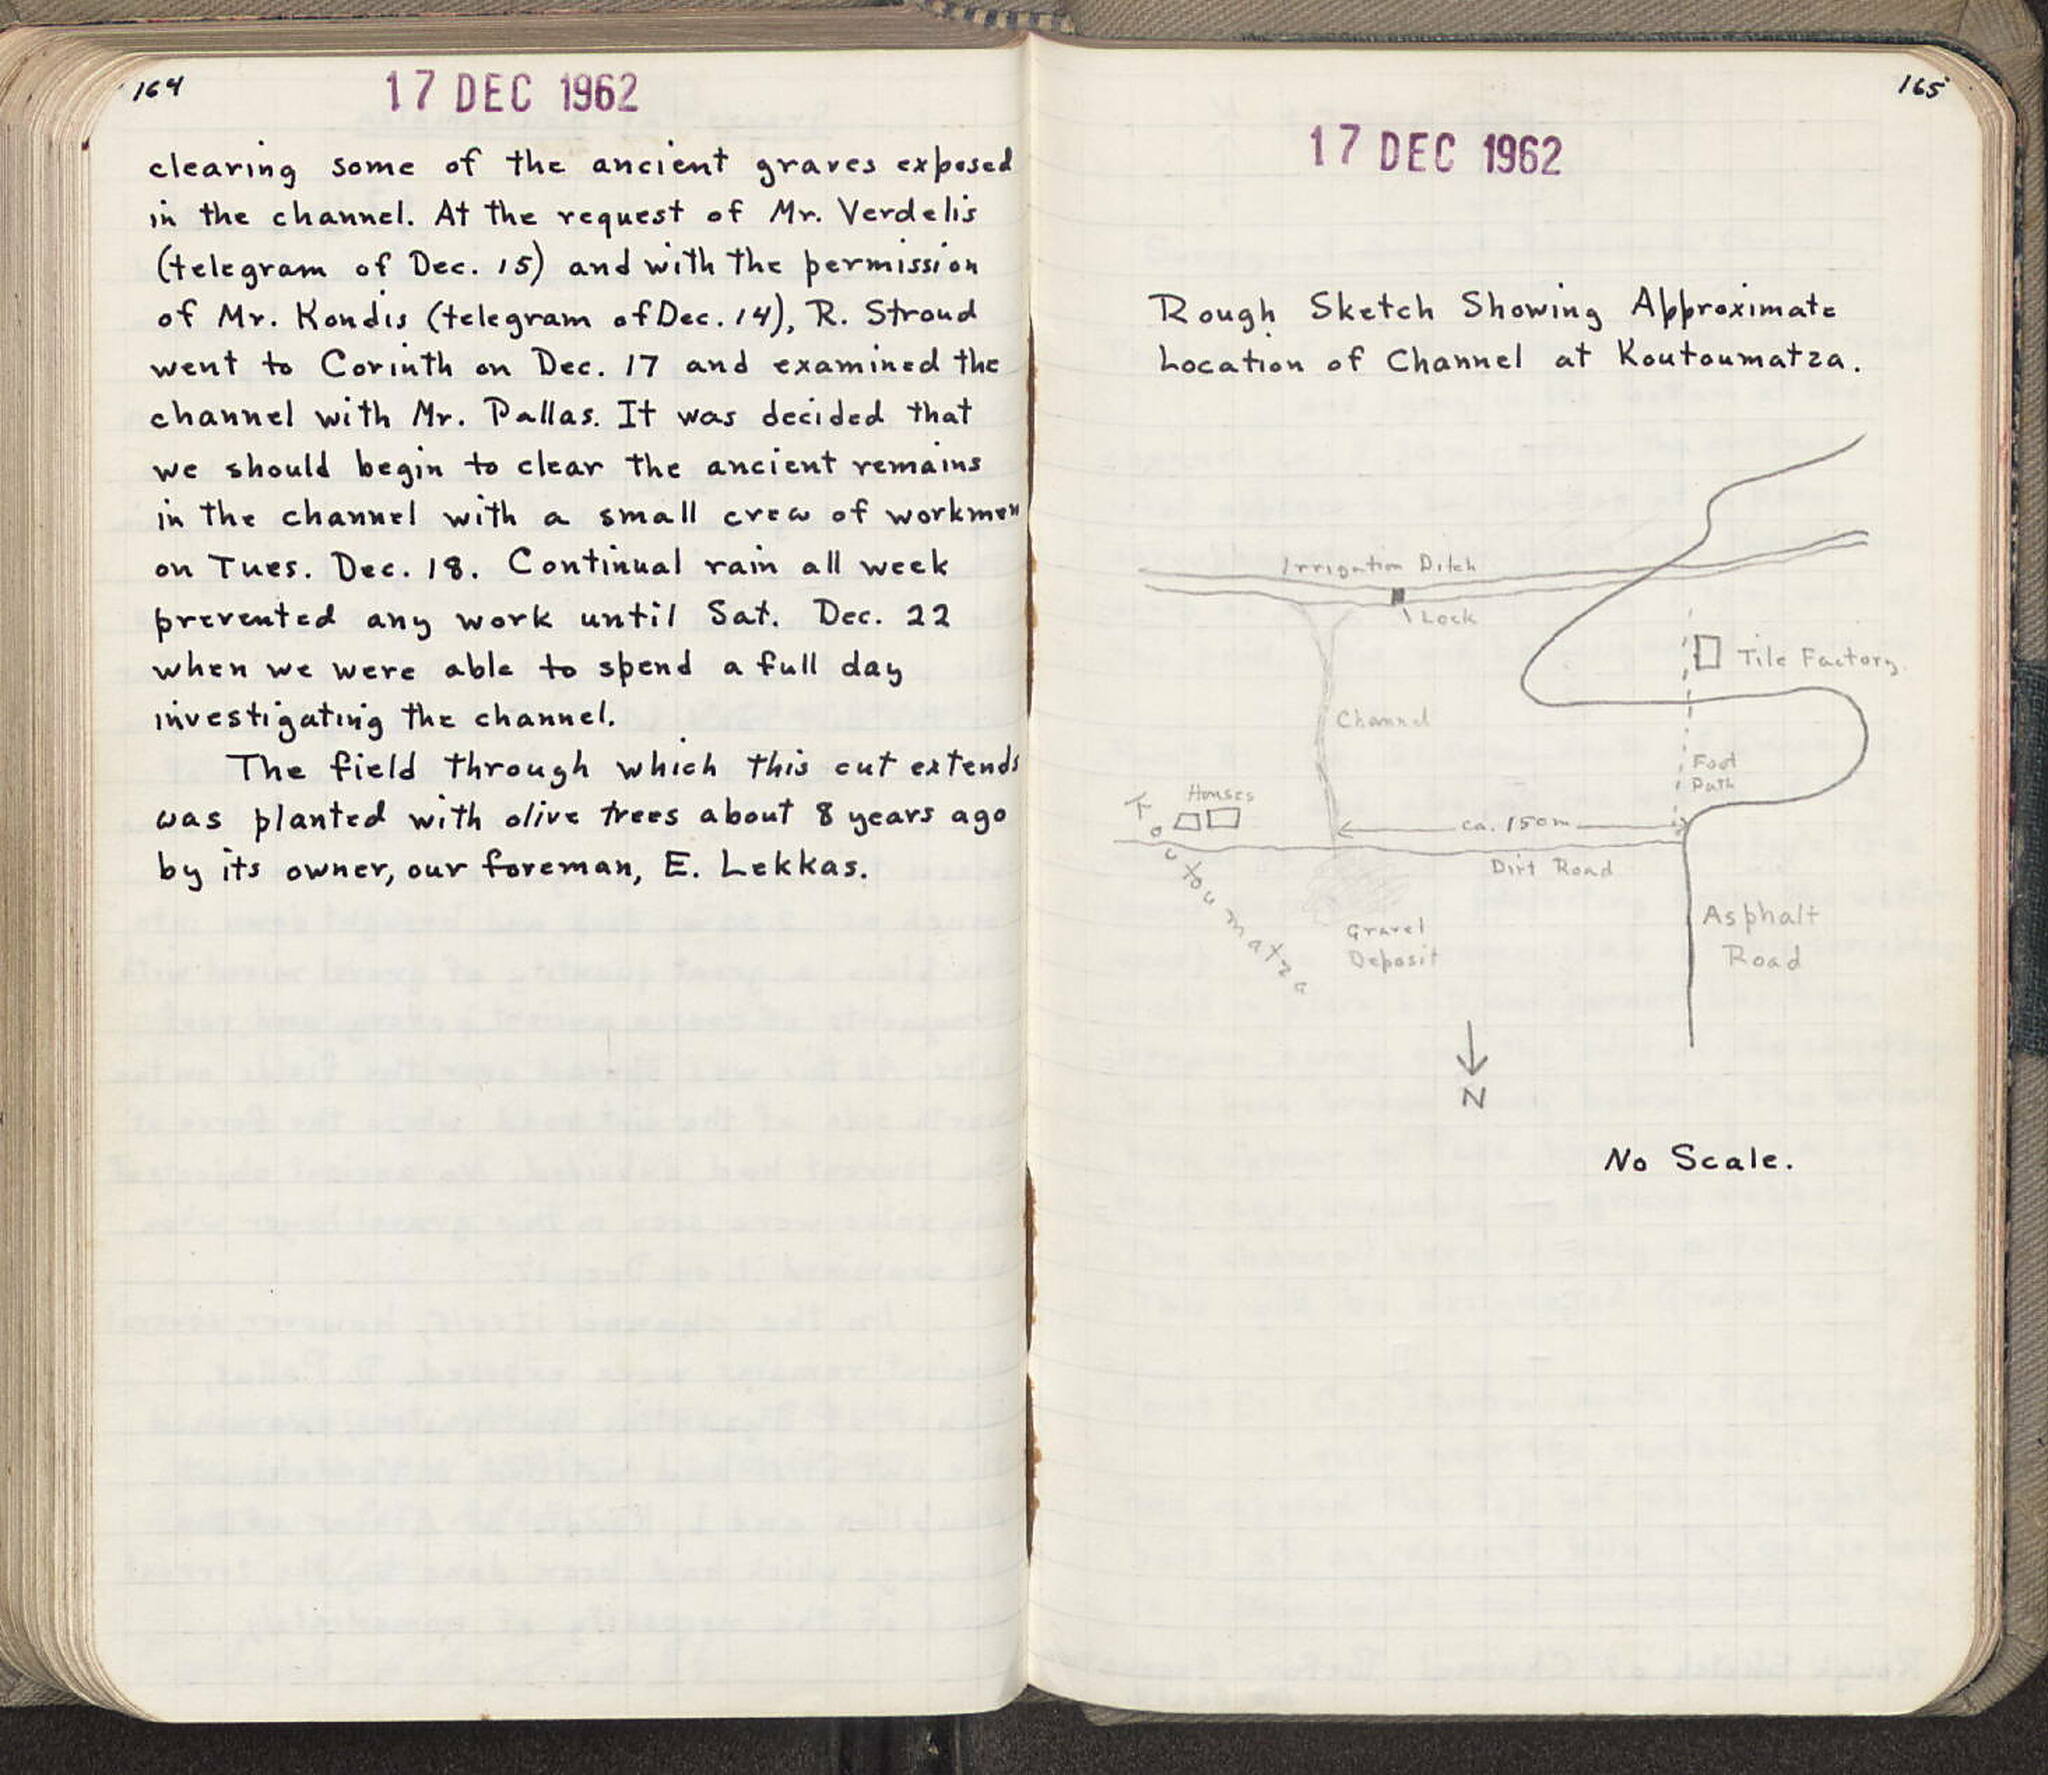 164
17 DEC 1962
clearing some of the ancient graves exposed
in the channel. At the request of Mr. Verdelis
(telegram of Dec. 15) and with the permission
of Mr. Kondis (telegram of Dec. 14), R. Stroud
went to Corinth on Dec. 17 and examined the
channel with Mr. Pallas. It was decided that
we should begin to clear the ancient remains
in the channel with a small crew of workmen
on Tues. Dec. 18. Continual rain all week
prevented any work until Sat. Dec. 22
when we were able to spend a full day
investigating the channel.
The field through which this cut extends
was planted with olive trees about 8 years ago
by its owner, our foreman, E. Lekkas.
165
17 DEC 1962
Rough Sketch Showing Approximate
Location of Channel at Koutoumatza.
Irrigation Ditch
Lock
Tile Factory
Channel
Foot
Path
Houses
To Koutoumatza
ca. 150m
Dirt Road
Gravel
Deposit
Asphalt
Road
N
No Scale.